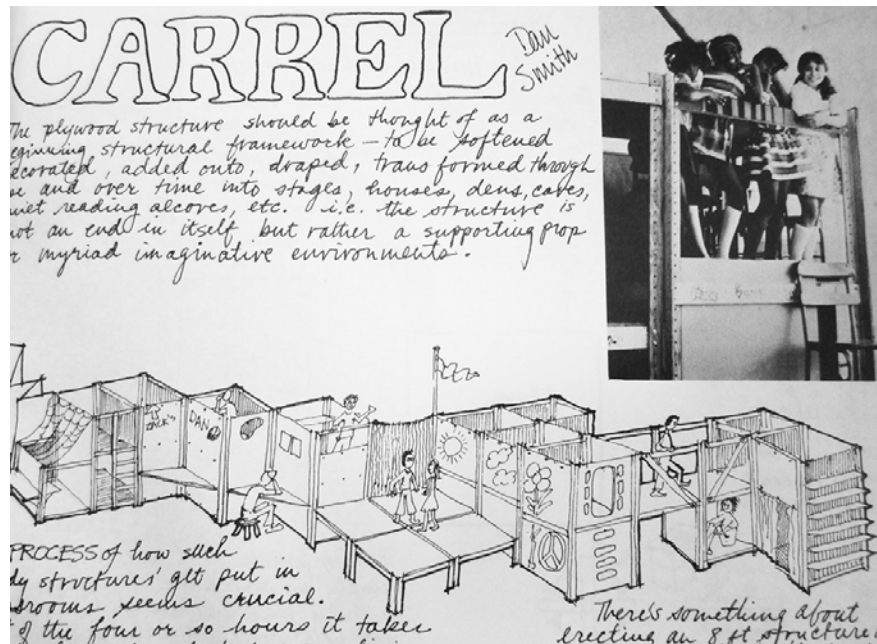 CARREL
Dan
Smith
The plywood structure should be thought of as a
eginning structural framework — to be softened
ecorated, added onto, draped, transformed through
se and over time into stages, houses, dens, caves,
uiet reading alcoves, etc. i.e. the structure is
not an end in itself but rather a supporting prop
r myriad imaginative environments.
JACK'S
DAN
PROCESS of how such
dy structures' get put in
srooms seems crucial.
of the four or so hours it takes
There's something about
erecting an 8 ft. structure